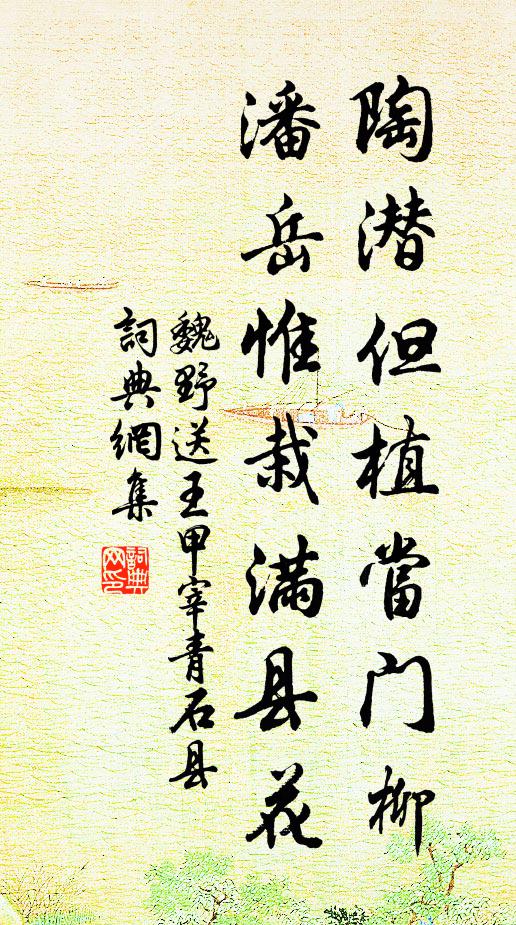 陶潜但植當门柳
潘岳惟栽满县花
魏野送王甲宰青石县
詞典網集
詞典
网印